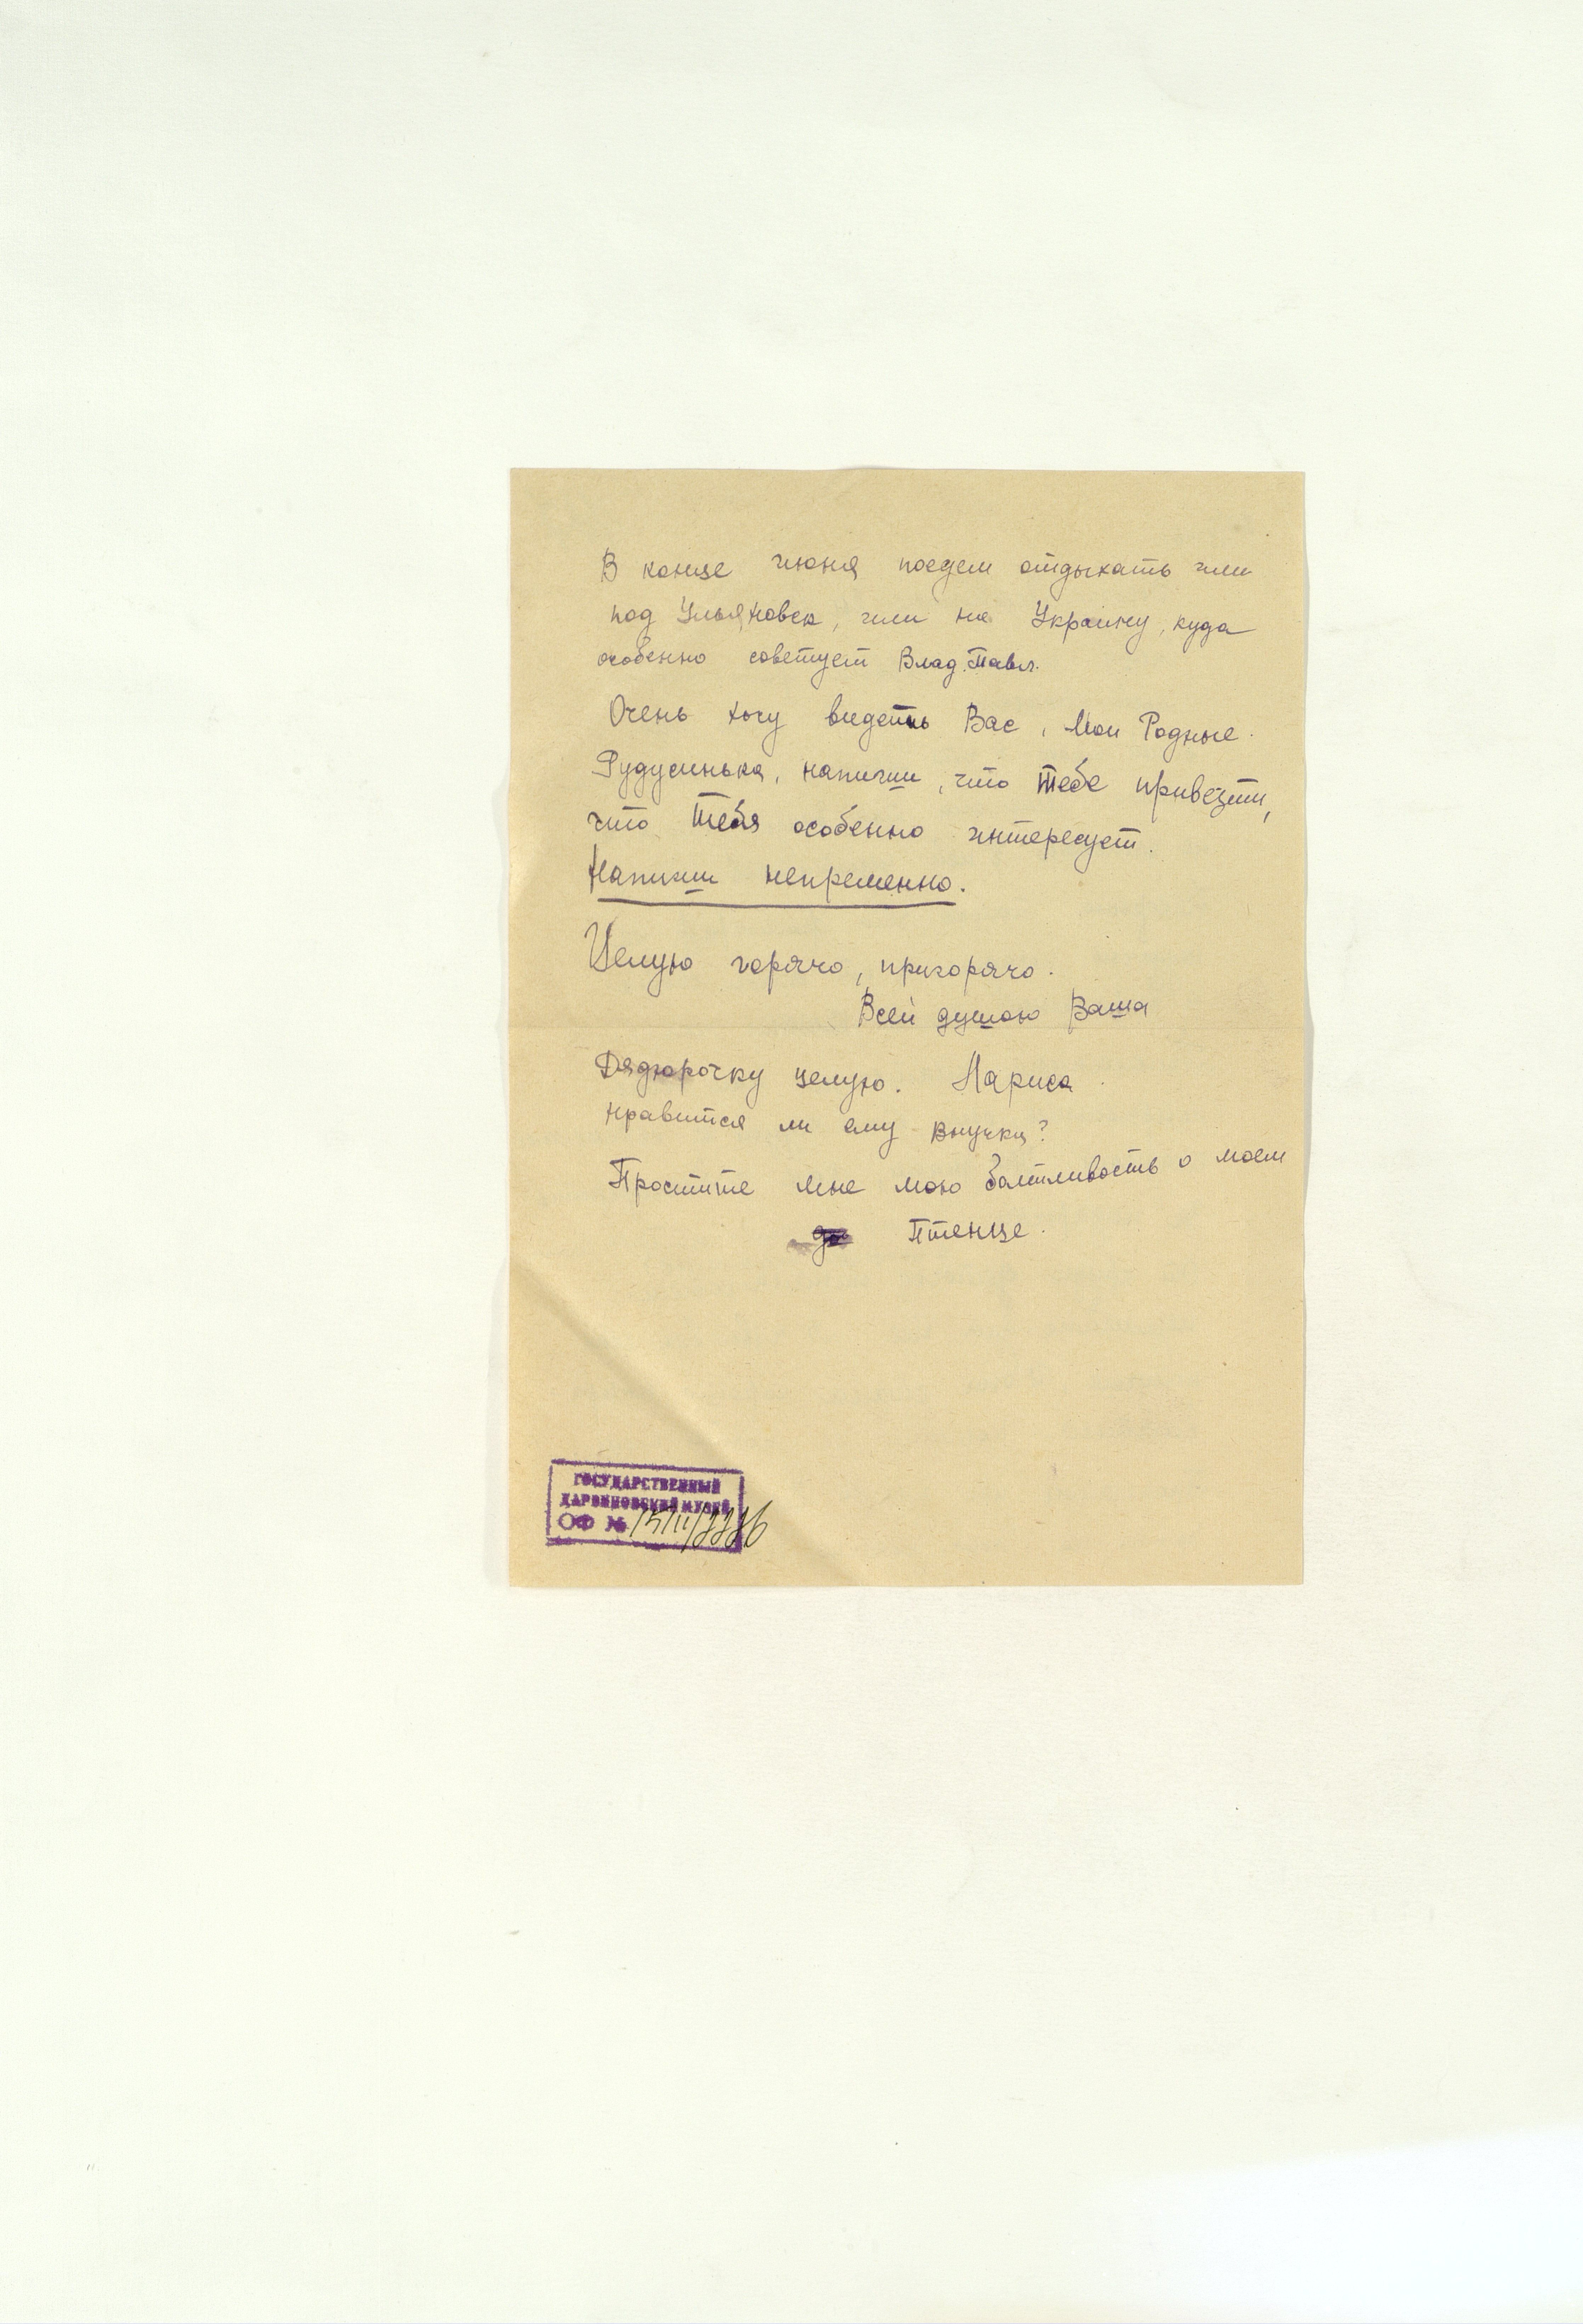 В конце июня поедем отдыхать или
под Ульяновск, или на Украину, куда
особенно советует Влад. Павл.
Очень хочу видеть Вас, Мои Родные.
Рудусинька, напиши, что тебе привезти,
что Тебя особенно интересует.
Напиши непременно.
Целую горячо, пригорячо.
Всей душою Ваша
Дядюрочку целую. Лариса
Нравится ли ему внучка?
Простите мне мою болтливость о моем
Птенце.
ГОСУДАРСТВЕННЫЙ
ДАРВИНОВСКИЙ МУЗЕЙ
ОФ №